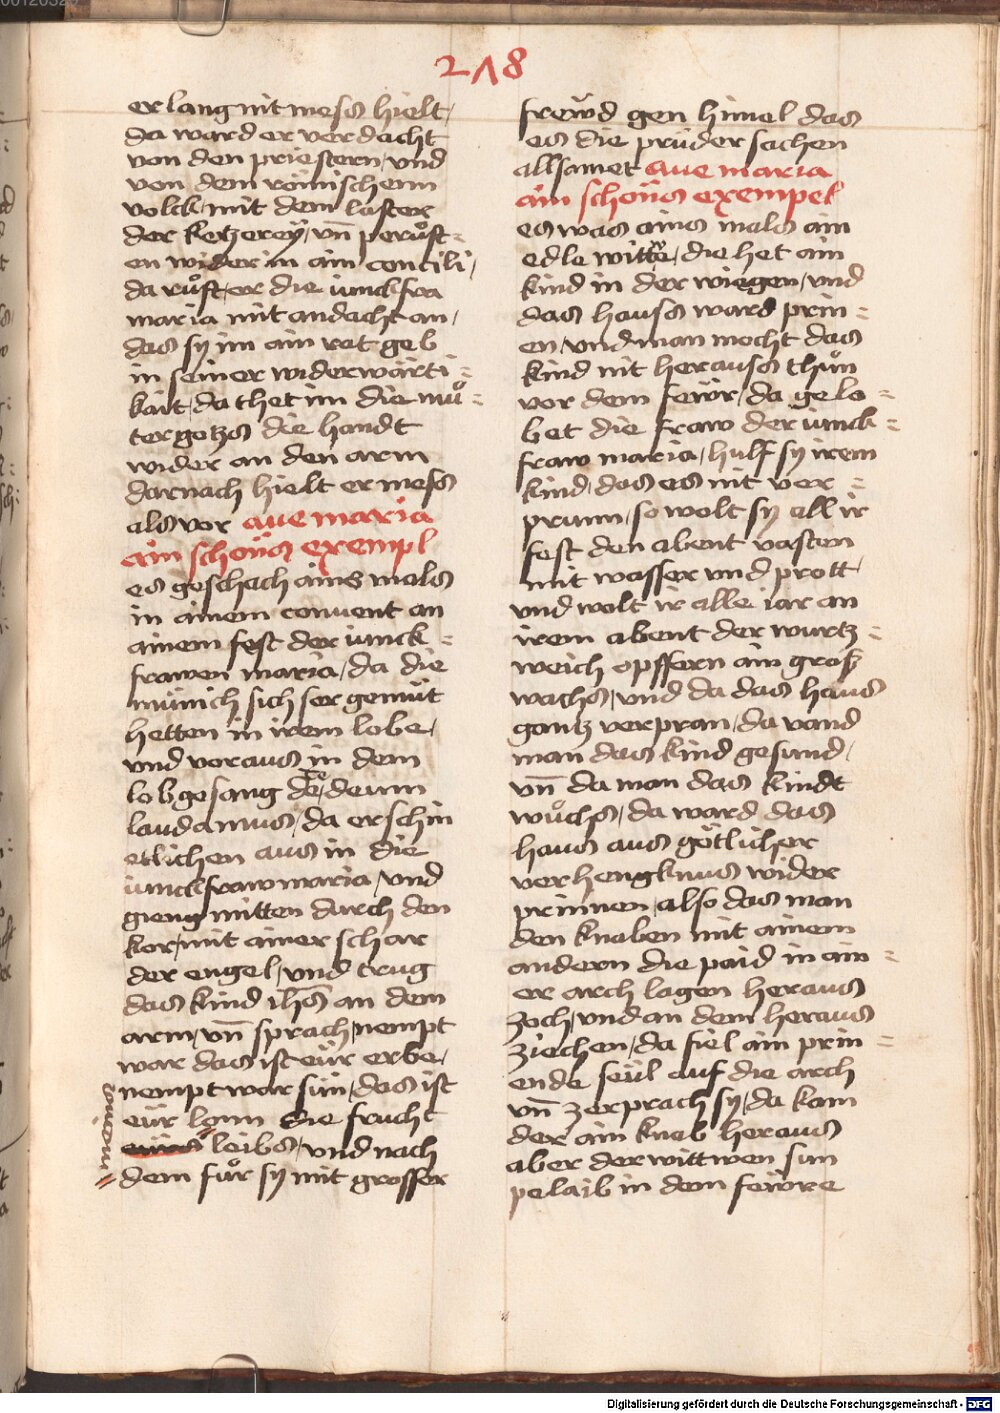 218
er lang nit mess hielt /
da ward er verdacht
von den priestern / vnd
von dem römischenn
volck / mit dem laster
der ketzereÿ / vn̄ perůft=
en wider in ain concili /
da růft er die iunckfra
maria mit andacht an /
das sy im ain rat geb
in seiner widerwärti=
kait / da thet im die mů=
ter gotzs die handt
wider an den arm
darnach hielt er mess
als vor aue maria
ain schöns exempl
es geschach ains mals
in ainem conuent an
ainem fest der iunck=
frawen maria / da die
münich sich ser gemüt
hetten in irem lobe /
vnd voraus in dem
lobgesang de / deum
laudamus / da erschin
etlichen aus in die
iunckfraw maria / vnd
gieng mitten durch den
kor / mit ainer schar
der engel / vnd trug
das kind ihs̄ an dem
arm / vn̄ sprach / nempt
war das ist eür erbe /
nempt war sün / das ist
eür lonn die frucht
meines leibs / vnd nach
dem fůr sy mit grosser
frewd gen himel das
es die prüder sachen
allsamet aue maria
ain schöns exempel
es was ains mals ain
edle wittwe / die het ain
kind in der wiegen / vnd
das hauss ward prin=
en / vnd man mocht das
kind nit herauss thůn
vor dem fewr / da gelo=
bet die fraw der iunck=
fraw maria / hulf sy irem
kind / das es nit ver=
prunn / so wolt sy all ir
fest den abent vasten
mit wasser vnd prott /
vnd wolt ir alle iar an
irem abent der wurtz=
weich opffern ain groß
wachs / vnd da das haus
gantz verpran / da vand
man das kind gesund /
vn̄ da man das kindt
wůchs / da ward das
haus aus götlicher
verhengknus wider
prinnen / also das man
den knaben mit ainem
andern die paid in ain=
er arch lagen heraus
zoch / vnd an dem heraus
ziechen / da fiel ain prin=
ende seül auf die arch
vn̄ zerprach sy / da kam
der ain knab heraus
aber der wittwen sun
pelaib in dem fewre
Digitalisierung gefördert durch die Deutsche Forschungsgemeinschaft - DFG